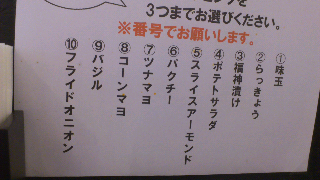 3つまでお選びください。
※番号でお願いします。
①味玉
②らっきょう
③福神漬け
④ポテトサラダ
⑤スライスアーモンド
⑥パクチー
⑦ツナマヨ
⑧コーンマヨ
⑨バジル
⑩フライドオニオン